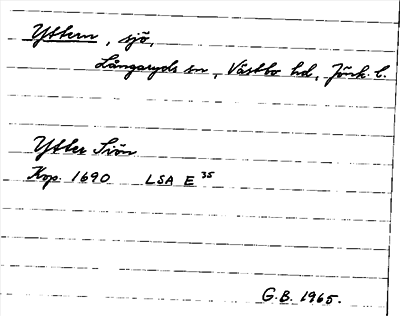 Yttern, sjö,
Långaryds sn, Västbo hd, Jönk. l.
Ytter Siön
Kop. 1690 LSA E 35
G.B. 1965.